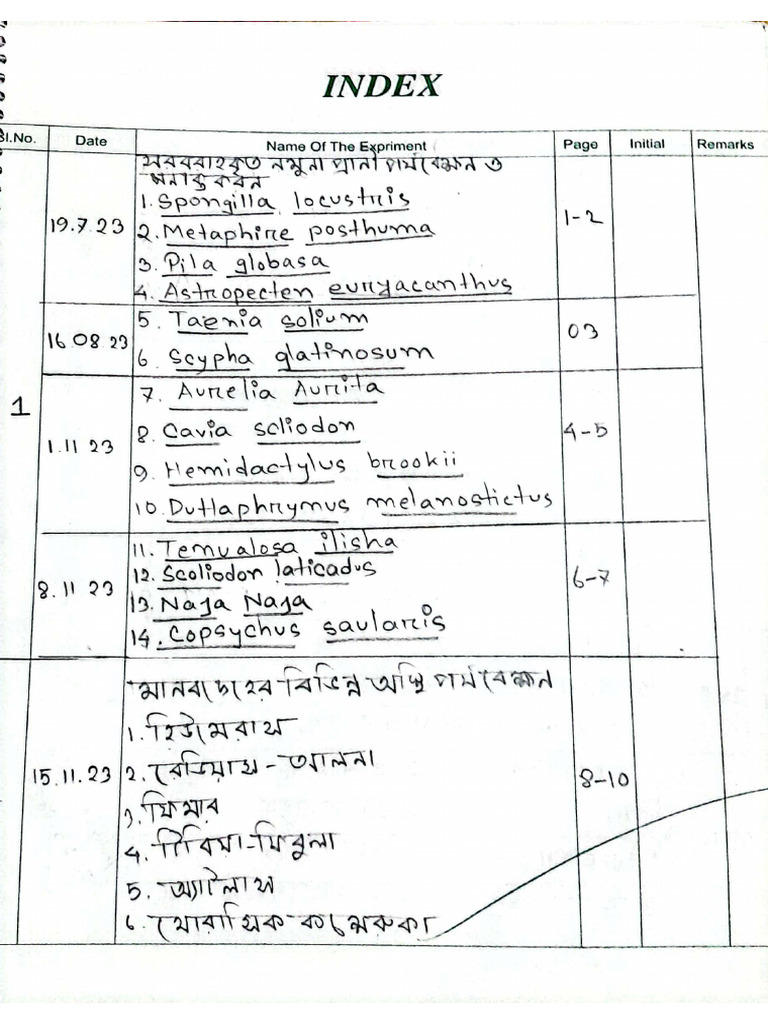 INDEX
Sl.No. Date Name Of The Expriment Page Initial Remarks
সরবরাহকৃত নমুনা প্রাণী পর্যবেক্ষন ও
সনাক্ত করন
1. Spongilla locustris
19.7.23 2. Metaphire posthuma 1-2
3. Pila globasa
4. Astropecten euryacanthus
5. Taenia solium
16.08.23 03
6. Scypha glatinosum
7. Aurelia Aurita
1
8. Cavia scliodon 4-5
1.11 23
9. Hemidactylus brookii
10. Duttaphrymus melanostictus
11. Tenualosa ilisha
12. Scoliodon laticadus
8.11 23 6-7
13. Naja Naja
14. Copsychus saularis
মানবদেহের বিভিন্ন অস্থি পর্যবেক্ষন
1. হিউমেরাস
15.11.23 2. রেডিয়াস - আলনা 8-10
3. ফিমার
4. টিবিয়া-ফিবুলা
5. অ্যাটলাস
6. থোরাসিক কশেরুকা